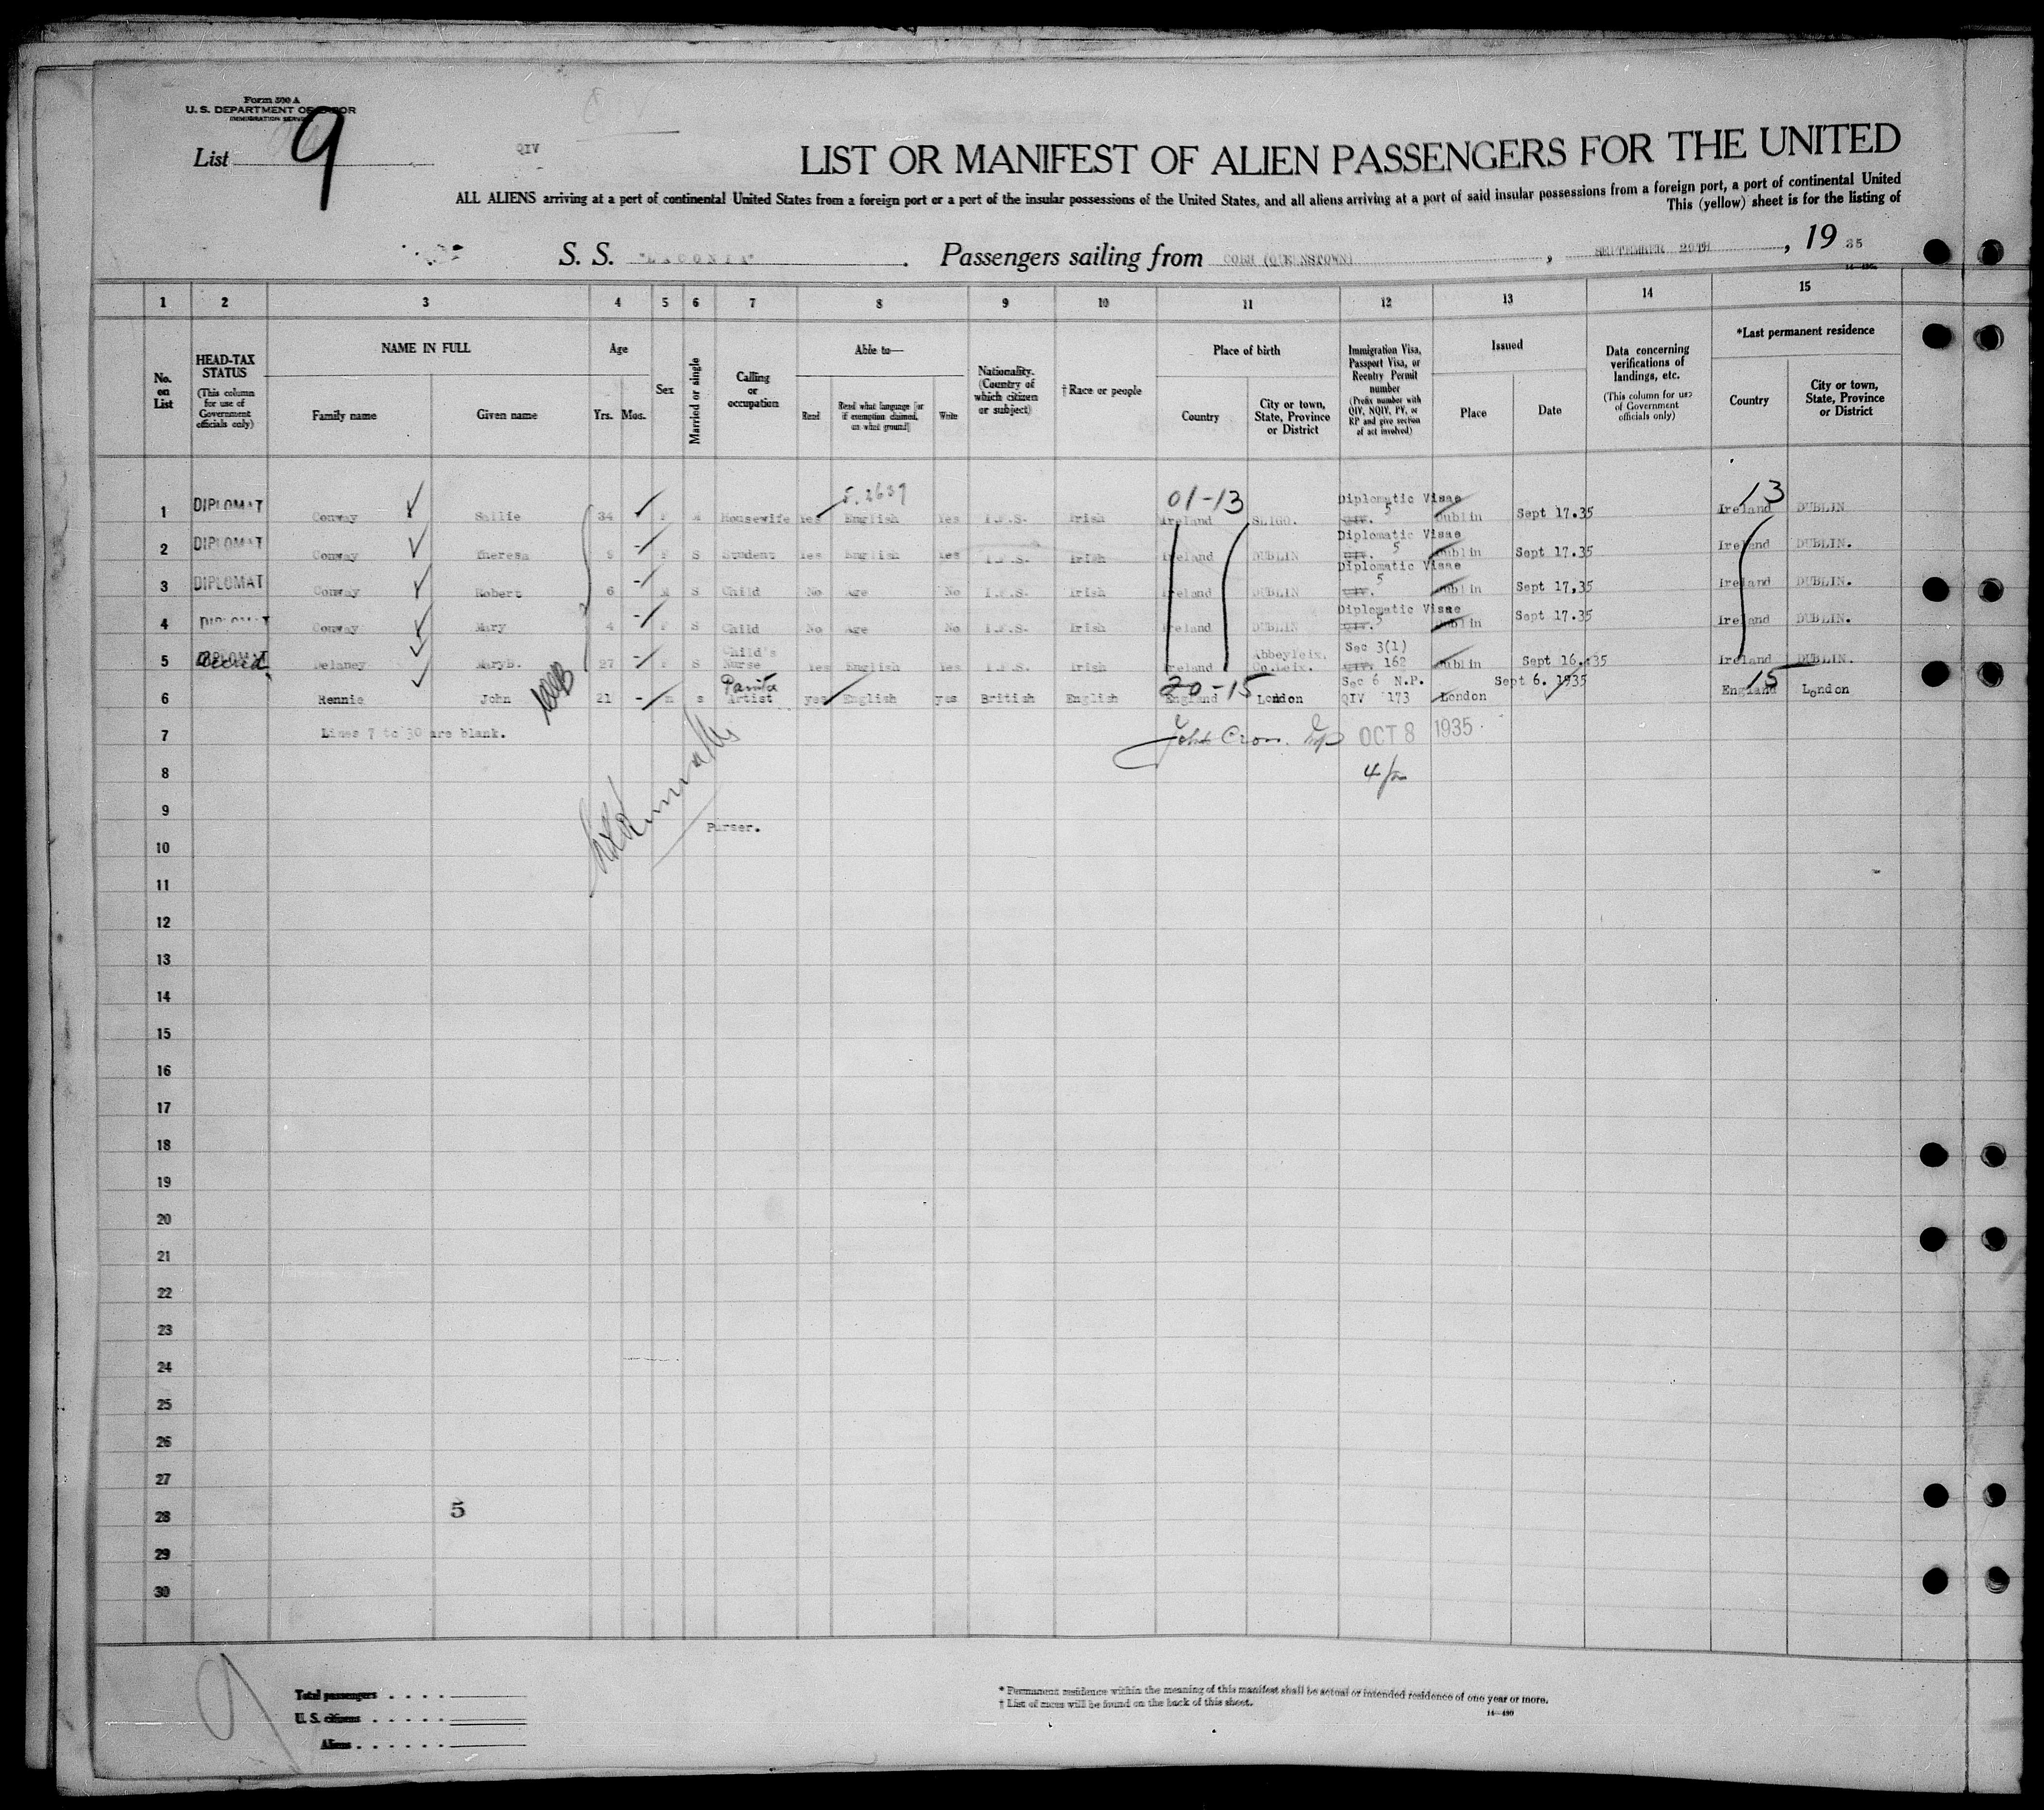 Form 500 A
U. S. DEPARTMENT OF LABOR
IMMIGRATION SERVICE
List 9
QIV
LIST OR MANIFEST OF ALIEN PASSENGERS FOR THE UNITED
ALL ALIENS arriving at a port of continental United States from a foreign port or a port of the insular possessions of the United States, and all aliens arriving at a port of said insular possessions from a foreign port, a port of continental United
This (yellow) sheet is for the listing of
S. S. "LACONIA". Passengers sailing from COBH (QUEENSTOWN), SEPTEMBER 29TH, 19 35
1 2 3 4 5 6 7 8 9 10 11 12 13 14 15
No. on List
HEAD-TAX STATUS (This column for use of Government officials only)
NAME IN FULL Family name Given name
Age Yrs. Mos.
Sex
Married or single
Calling or occupation
Able to— Read Read what language [or if exemption claimed, on what ground] Write
Nationality. (Country of which citizen or subject)
† Race or people
Place of birth Country City or town, State, Province or District
Immigration Visa, Passport Visa, or Reentry Permit number (Prefix number with QIV, NQIV, PV, or RP and give section of act involved)
Issued Place Date
Data concerning verifications of landings, etc. (This column for use of Government officials only)
*Last permanent residence Country City or town, State, Province or District
5.2637 01-13 Diplomatic Visae 13
1 DIPLOMAT Conway Sallie 34 - F M Housewife Yes English Yes I.F.S. Irish Ireland SLIGO. QIV. 5 Dublin Sept 17.35 Ireland DUBLIN
Diplomatic Visae
2 DIPLOMAT Conway Theresa 9 - F S Student Yes English Yes I.F.S. Irish Ireland DUBLIN QIV. 5 Dublin Sept 17.35 Ireland DUBLIN.
Diplomatic Visae
3 DIPLOMAT Conway Robert 6 - M S Child No Age No I.F.S. Irish Ireland DUBLIN QIV. 5 Dublin Sept 17.35 Ireland DUBLIN.
Diplomatic Visae
4 DIPLOMAT Conway Mary 4 - F S Child No Age No I.F.S. Irish Ireland DUBLIN QIV. 5 Dublin Sept 17.35 Ireland DUBLIN.
5 DIPLOMAT Delaney MaryB. 27 - F S Child's Nurse Yes English Yes I.F.S. Irish Ireland Abbeyleix. Co.Leix. Sec 3(1) QIV. 162 Dublin Sept 16.35 Ireland DUBLIN.
20-15 Sec 6 N.P. 15
6 Rennie John 21 - m s Artist yes English yes British English England London QIV 173 London Sept 6. 1935 England London
7 Lines 7 to 30 are blank. OCT 8 1935
8
9
Purser.
10
11
12
13
14
15
16
17
18
19
20
21
22
23
24
25
26
27
28 5
29
30
9
Total passengers
U. S. citizens
Aliens
* Permanent residence within the meaning of this manifest shall be actual or intended residence of one year or more.
† List of races will be found on the back of this sheet.
14—490